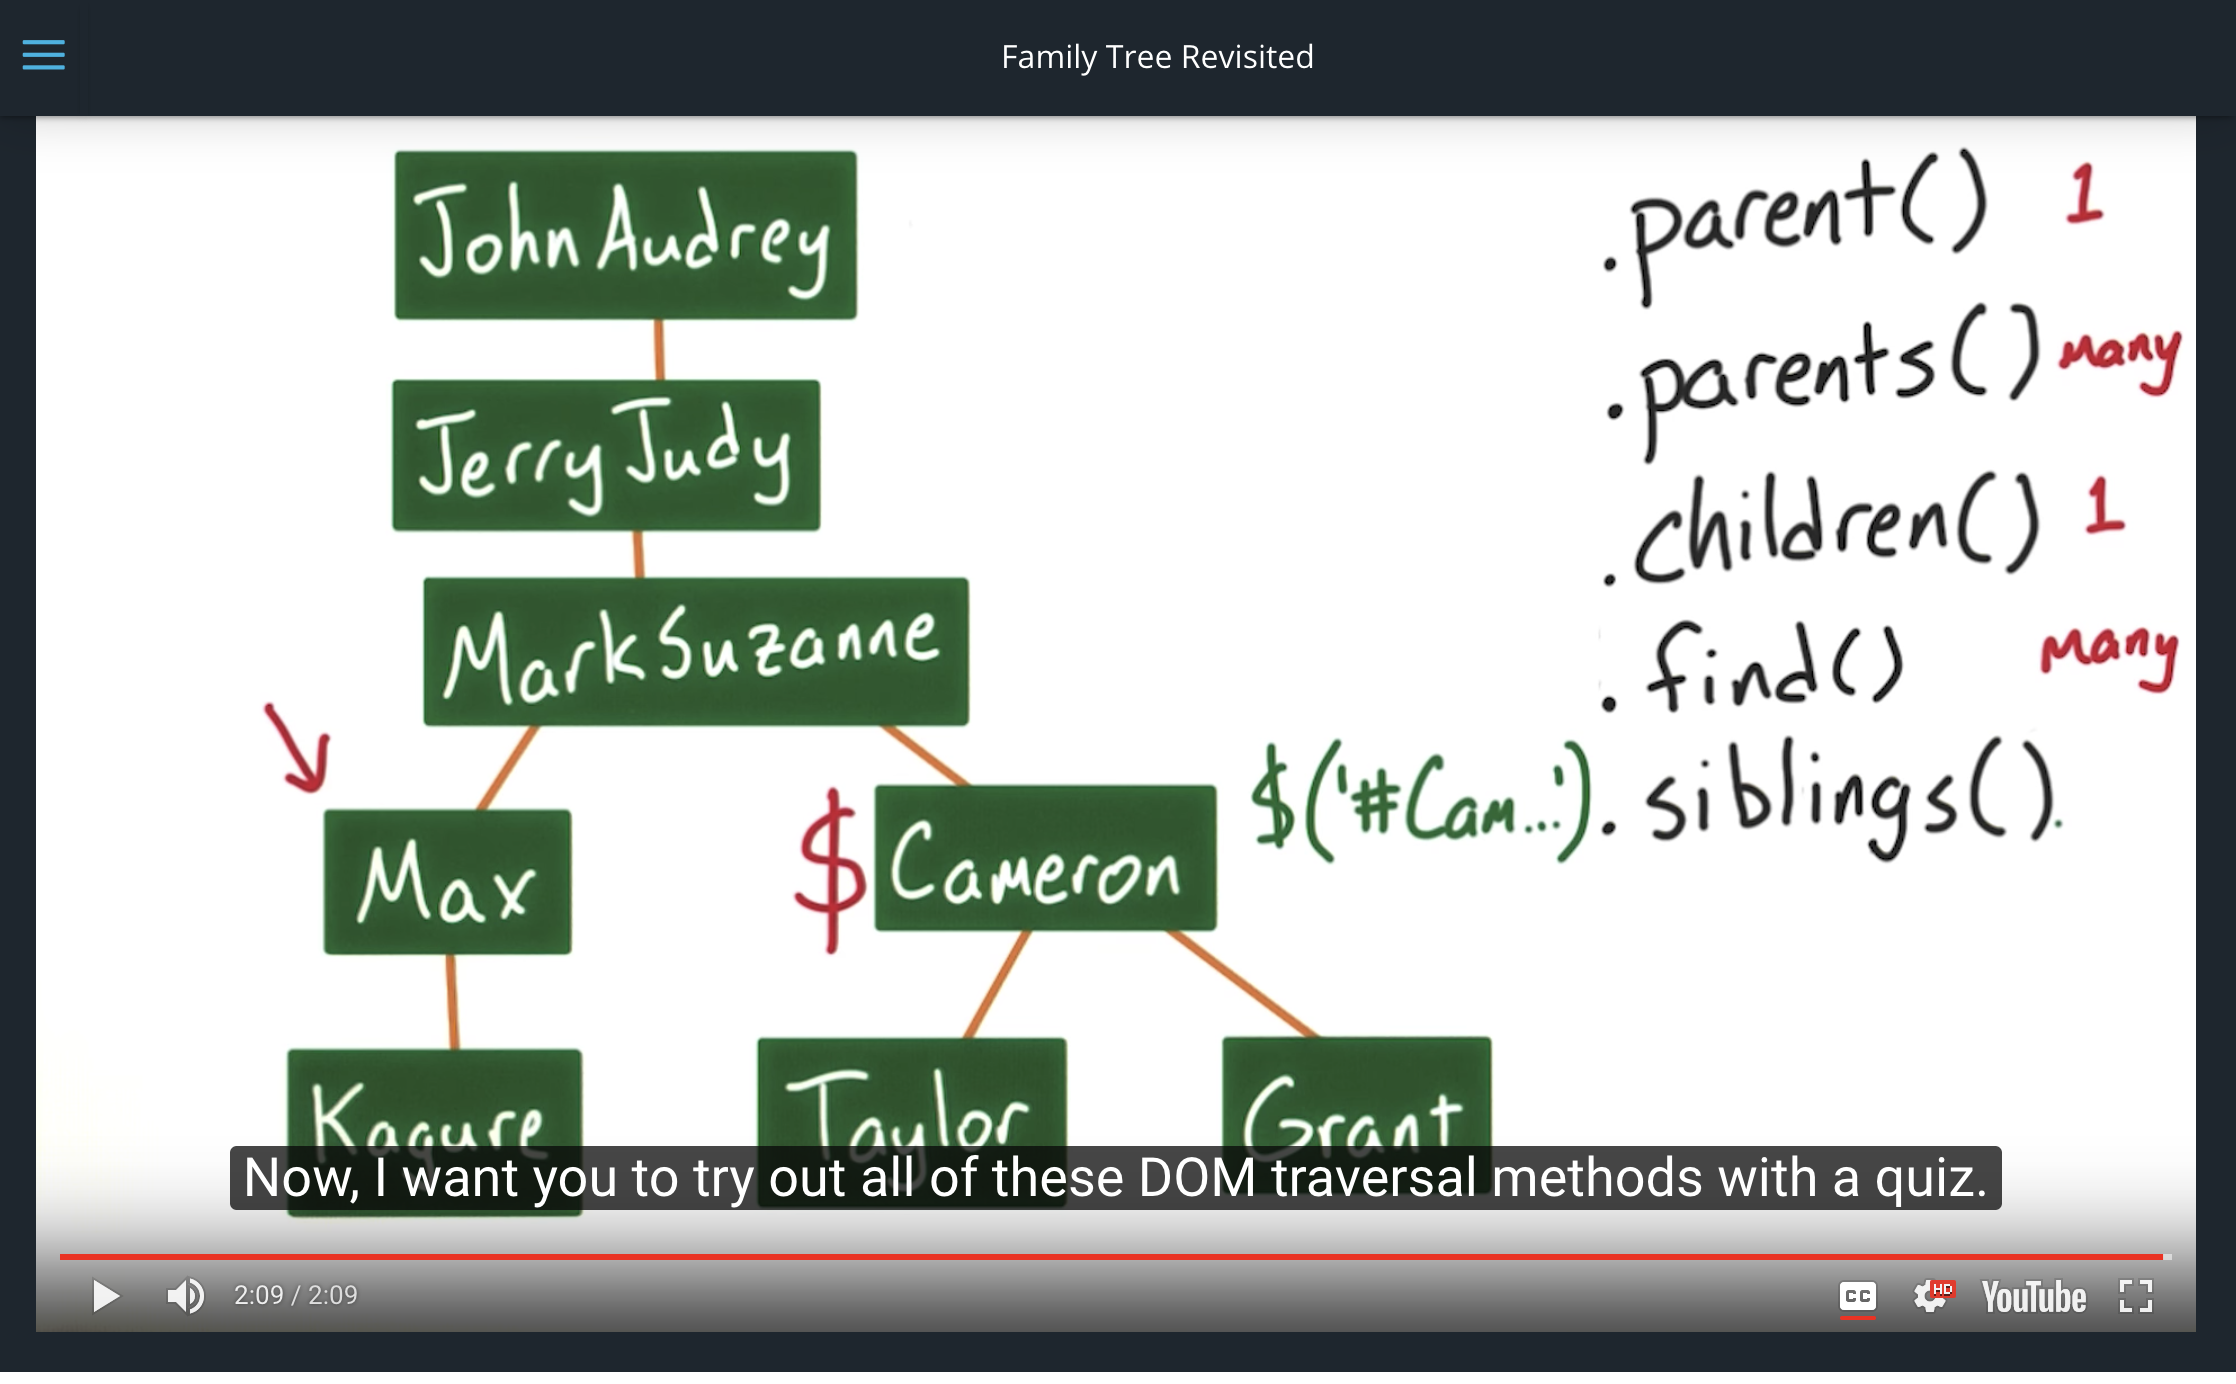 Family Tree Revisited
John Audrey
Jerry Judy
Mark Suzanne
Max
Cameron
$
Kagure
Taylor
Grant
.parent() 1
.parents() many
.children() 1
.find() many
$('#Cam...').siblings().
Now, I want you to try out all of these DOM traversal methods with a quiz.
2:09 / 2:09
CC
HD
YouTube